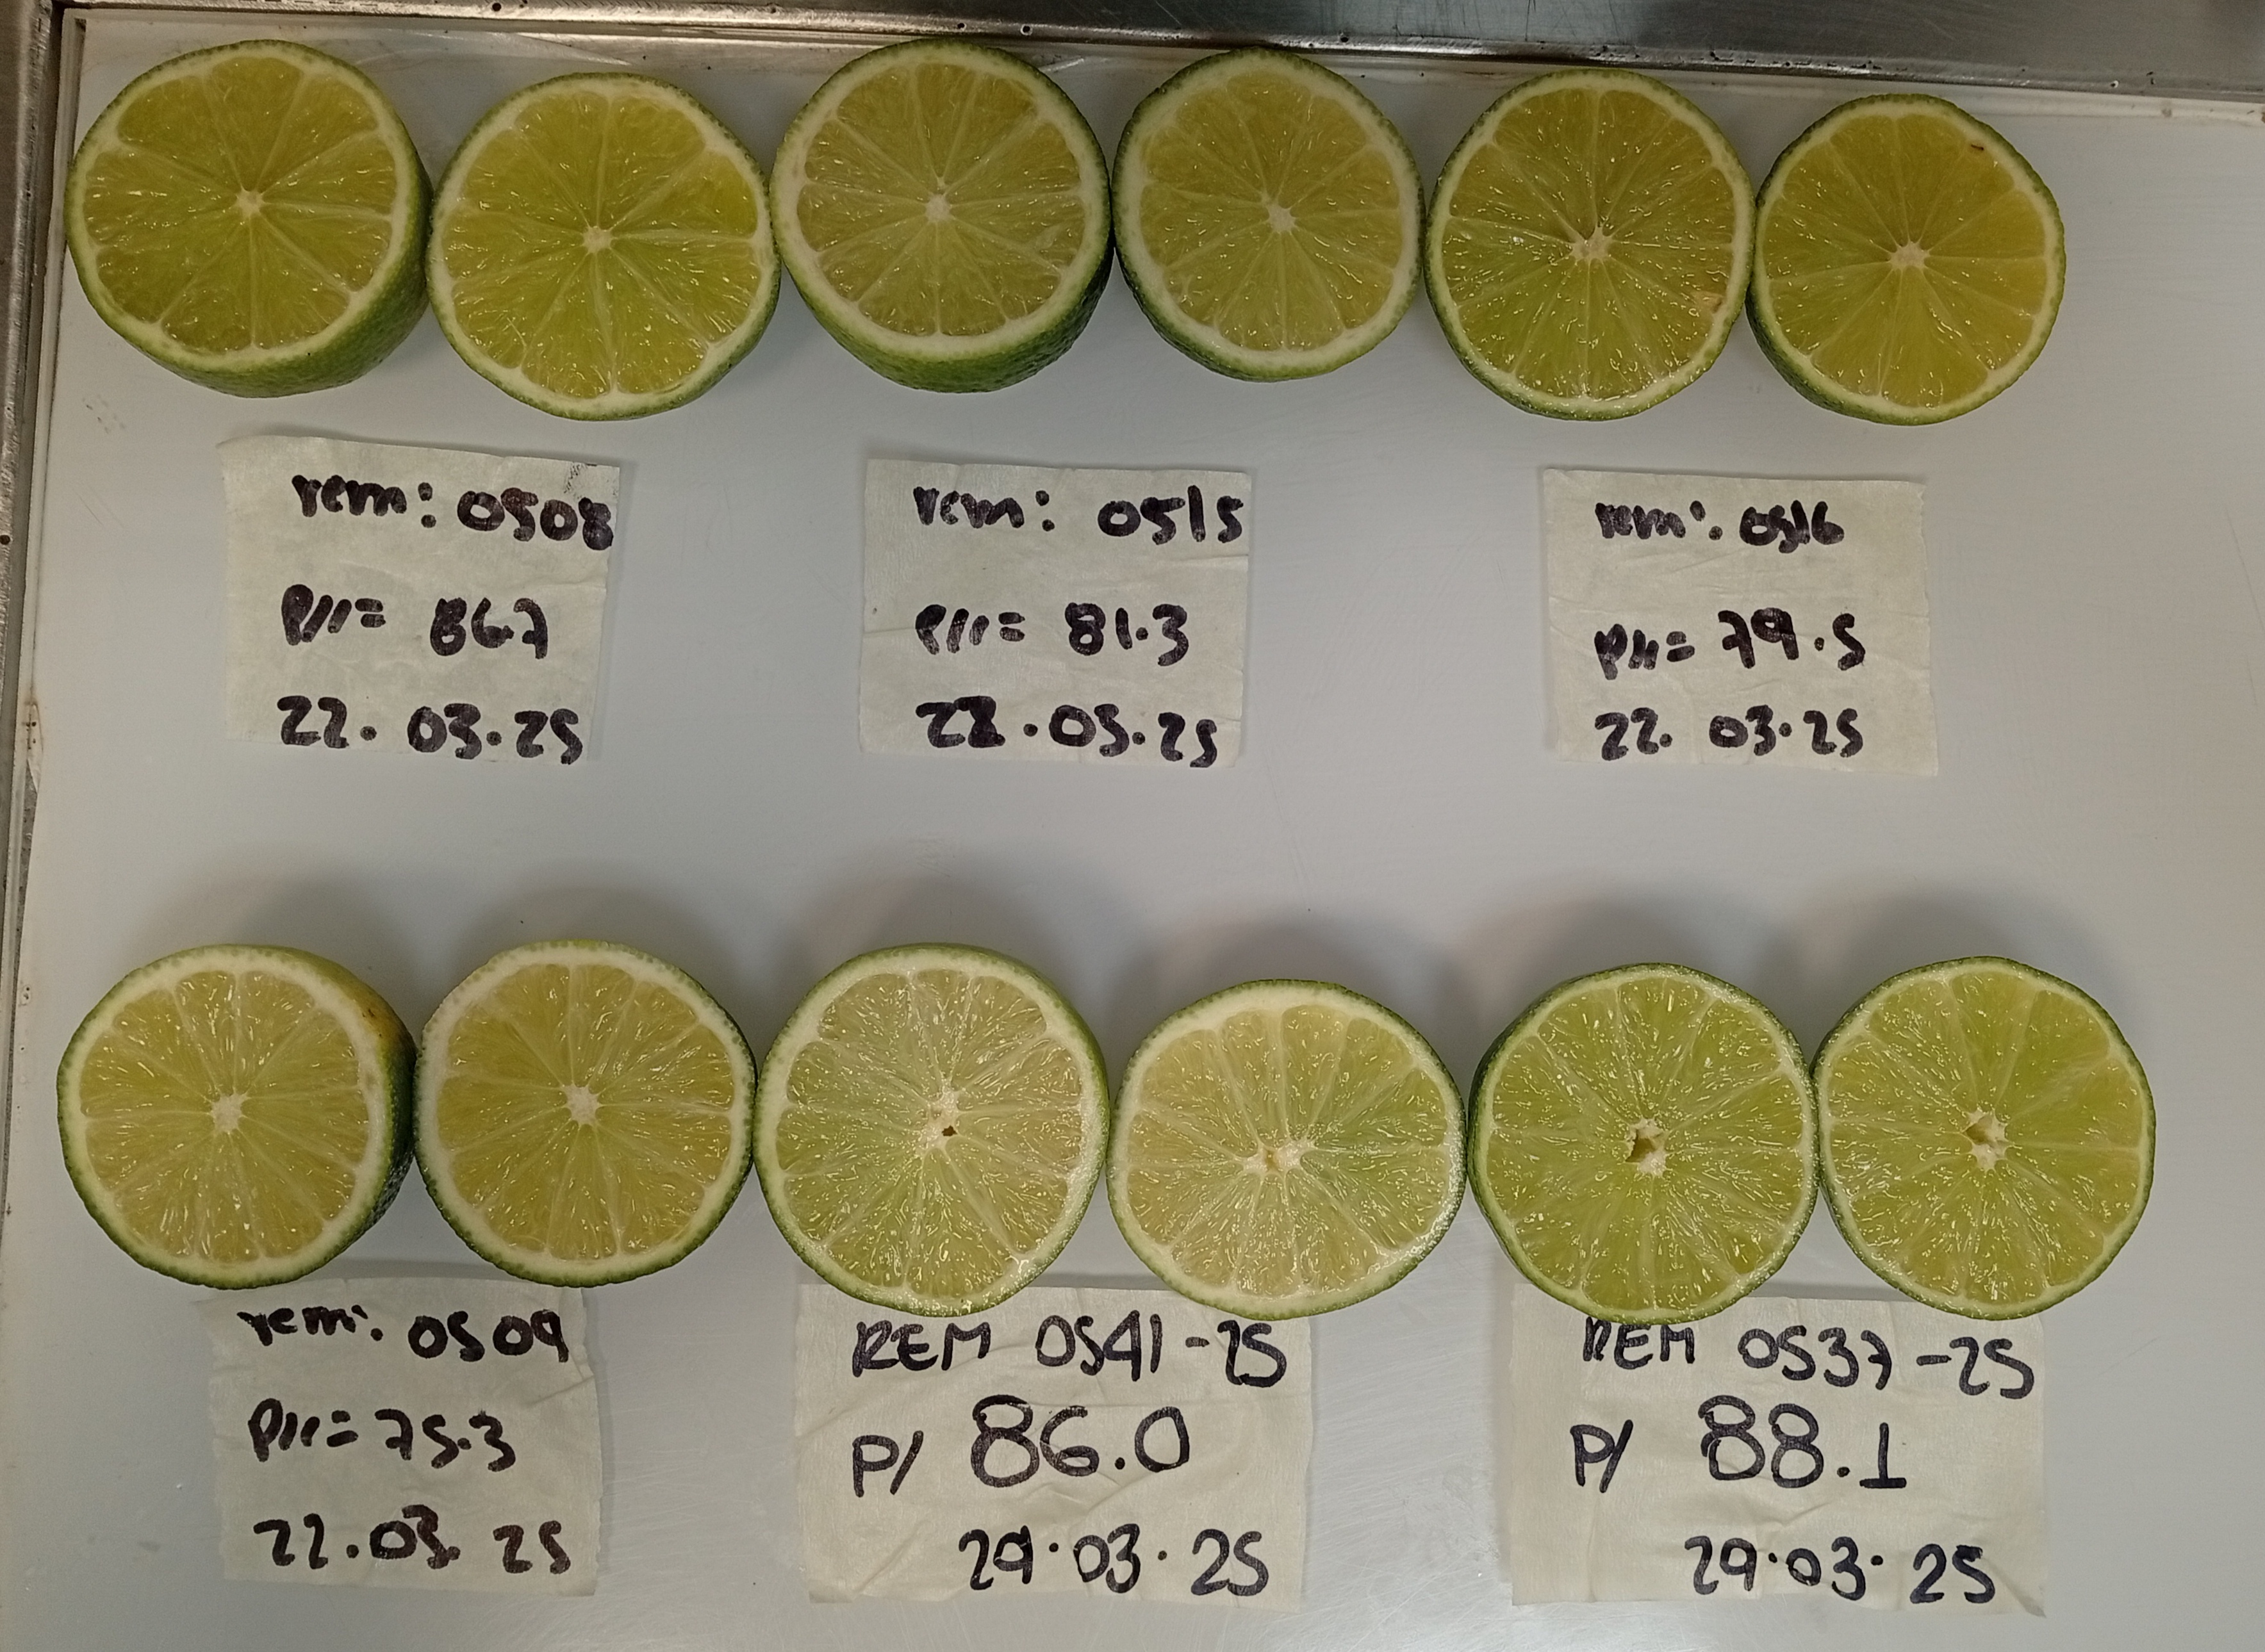 rem: 0508
P//= 86.7
22.03.25
rem: 0515
P//= 81.3
22.03.25
rem: 0516
P//= 79.5
22.03.25
rem: 0509
P//= 75.3
22.03.25
REM 0541-25
P/ 86.0
29.03.25
REM 0537-25
P/ 88.1
29.03.25